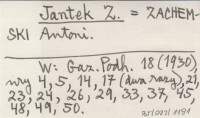 Jantek Z. = ZACHEM-
SKI Antoni.
W: Gaz. Podh. 18 (1930),
nry 4, 5, 14, 17 (dwa razy), 21,
23, 24, 26, 29, 33, 37, 45,
48, 49, 50.